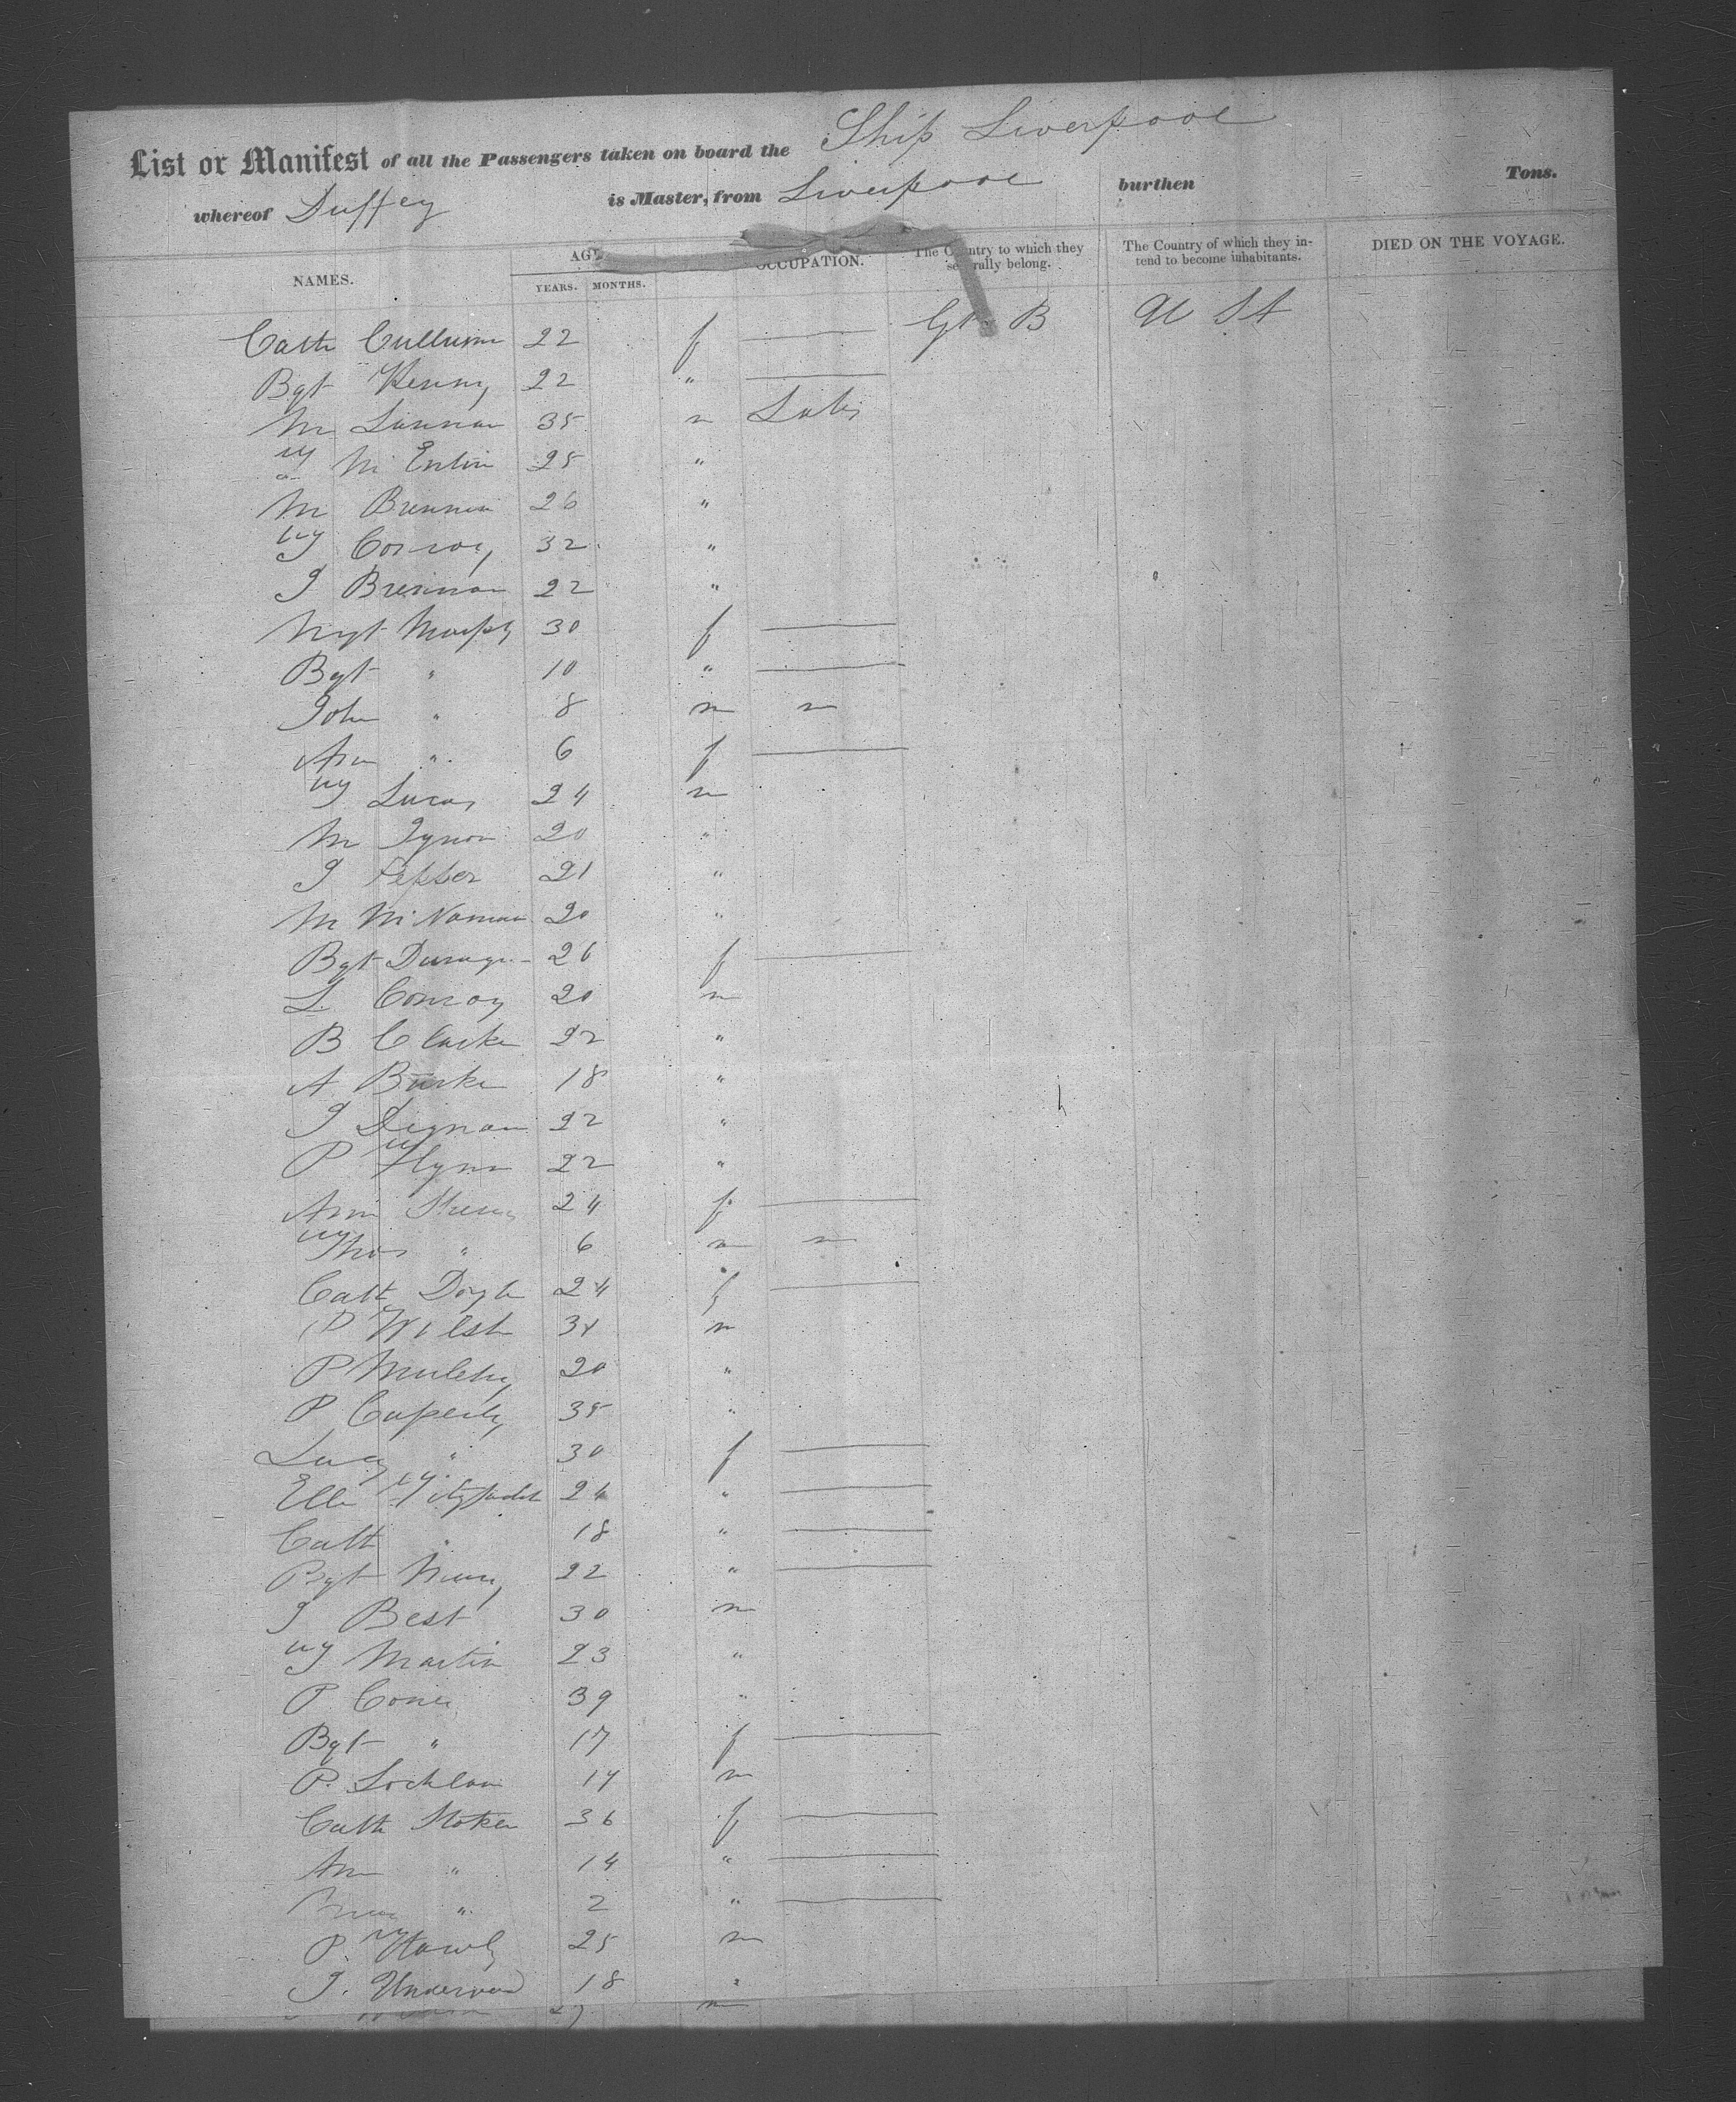 List or Manifest of all the Passengers taken on board the Ship Liverpool
whereof Duffey is Master, from Liverpool burthen Tons.
NAMES. AGE OCCUPATION. The Country to which they severally belong. The Country of which they intend to become inhabitants. DIED ON THE VOYAGE.
YEARS. MONTHS.
Cath Cullum 22 f — Gt. B U St
Bgt Kenny 22 " —
M Lannan 35 m Labr
M 25 "
M Brennan 26 "
J Conroy 32 "
J Brennan 22 "
Mgt Murphy 30 f —
Bgt " 10 " —
John " 8 m
Ann " 6 f —
J Lucas 24 m
M Tynon 20 "
J Pepper 21 "
M McNamara 20 "
Bgt 26 f —
L Conroy 20 m
B Clarke 22 "
A Burke 18 "
J Dignan 22 "
P Flynn 22 "
Ann 24 f —
Thos " 6 m
Cath Doyle 24 f —
P Welsh 34 m
P 20 "
P 35 "
Lucy " 30 f —
Ellen 24 " —
Cath " 18 " —
Bgt 22 " —
J Best 30 m
J Martin 23 "
P 39 "
Bgt " 17 f —
P. Lochlan 14 m
Cath Stoken 36 f —
Ann " 14 " —
" 2 " —
P. 25 m
J. Underwood 18 "